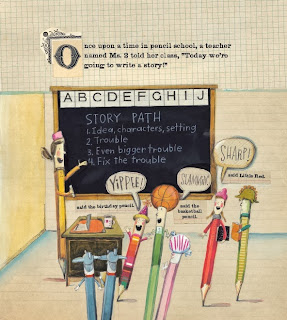 Once upon a time in pencil school, a teacher
named Ms. 2 told her class, "Today we're
going to write a story!"
ABCDEFGHIJ
STORY PATH
1. Idea, characters, setting
2. Trouble
3. Even bigger trouble
4. Fix the trouble
YIPPEE!
said the birthday pencil.
SLAMMIN'!
said the
basketball
pencil.
SHARP!
said Little Red.